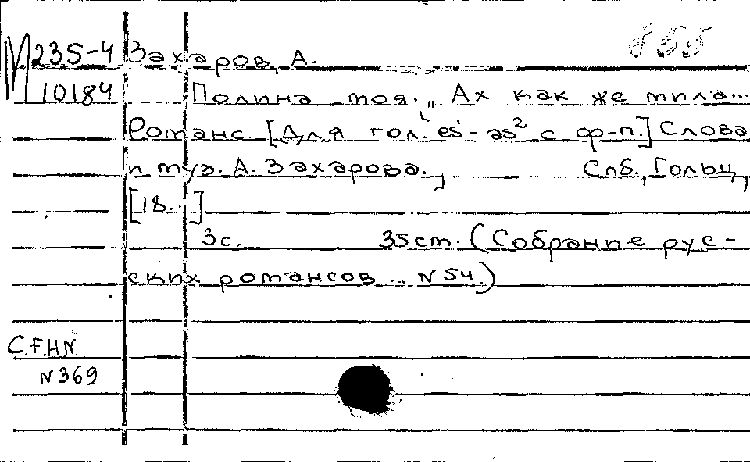 М 235-4 Захаров, А.
10184 Полина моя. „Ах как же мила...
Романс. [Для гол. es¹-as² с ф-п.] Слова
и муз. А. Захарова.
Спб., Гольц,
[18..]
3с. 35см. (Собрание рус-
ских романсов ... N 54.)
C.F.H.N.
N 369